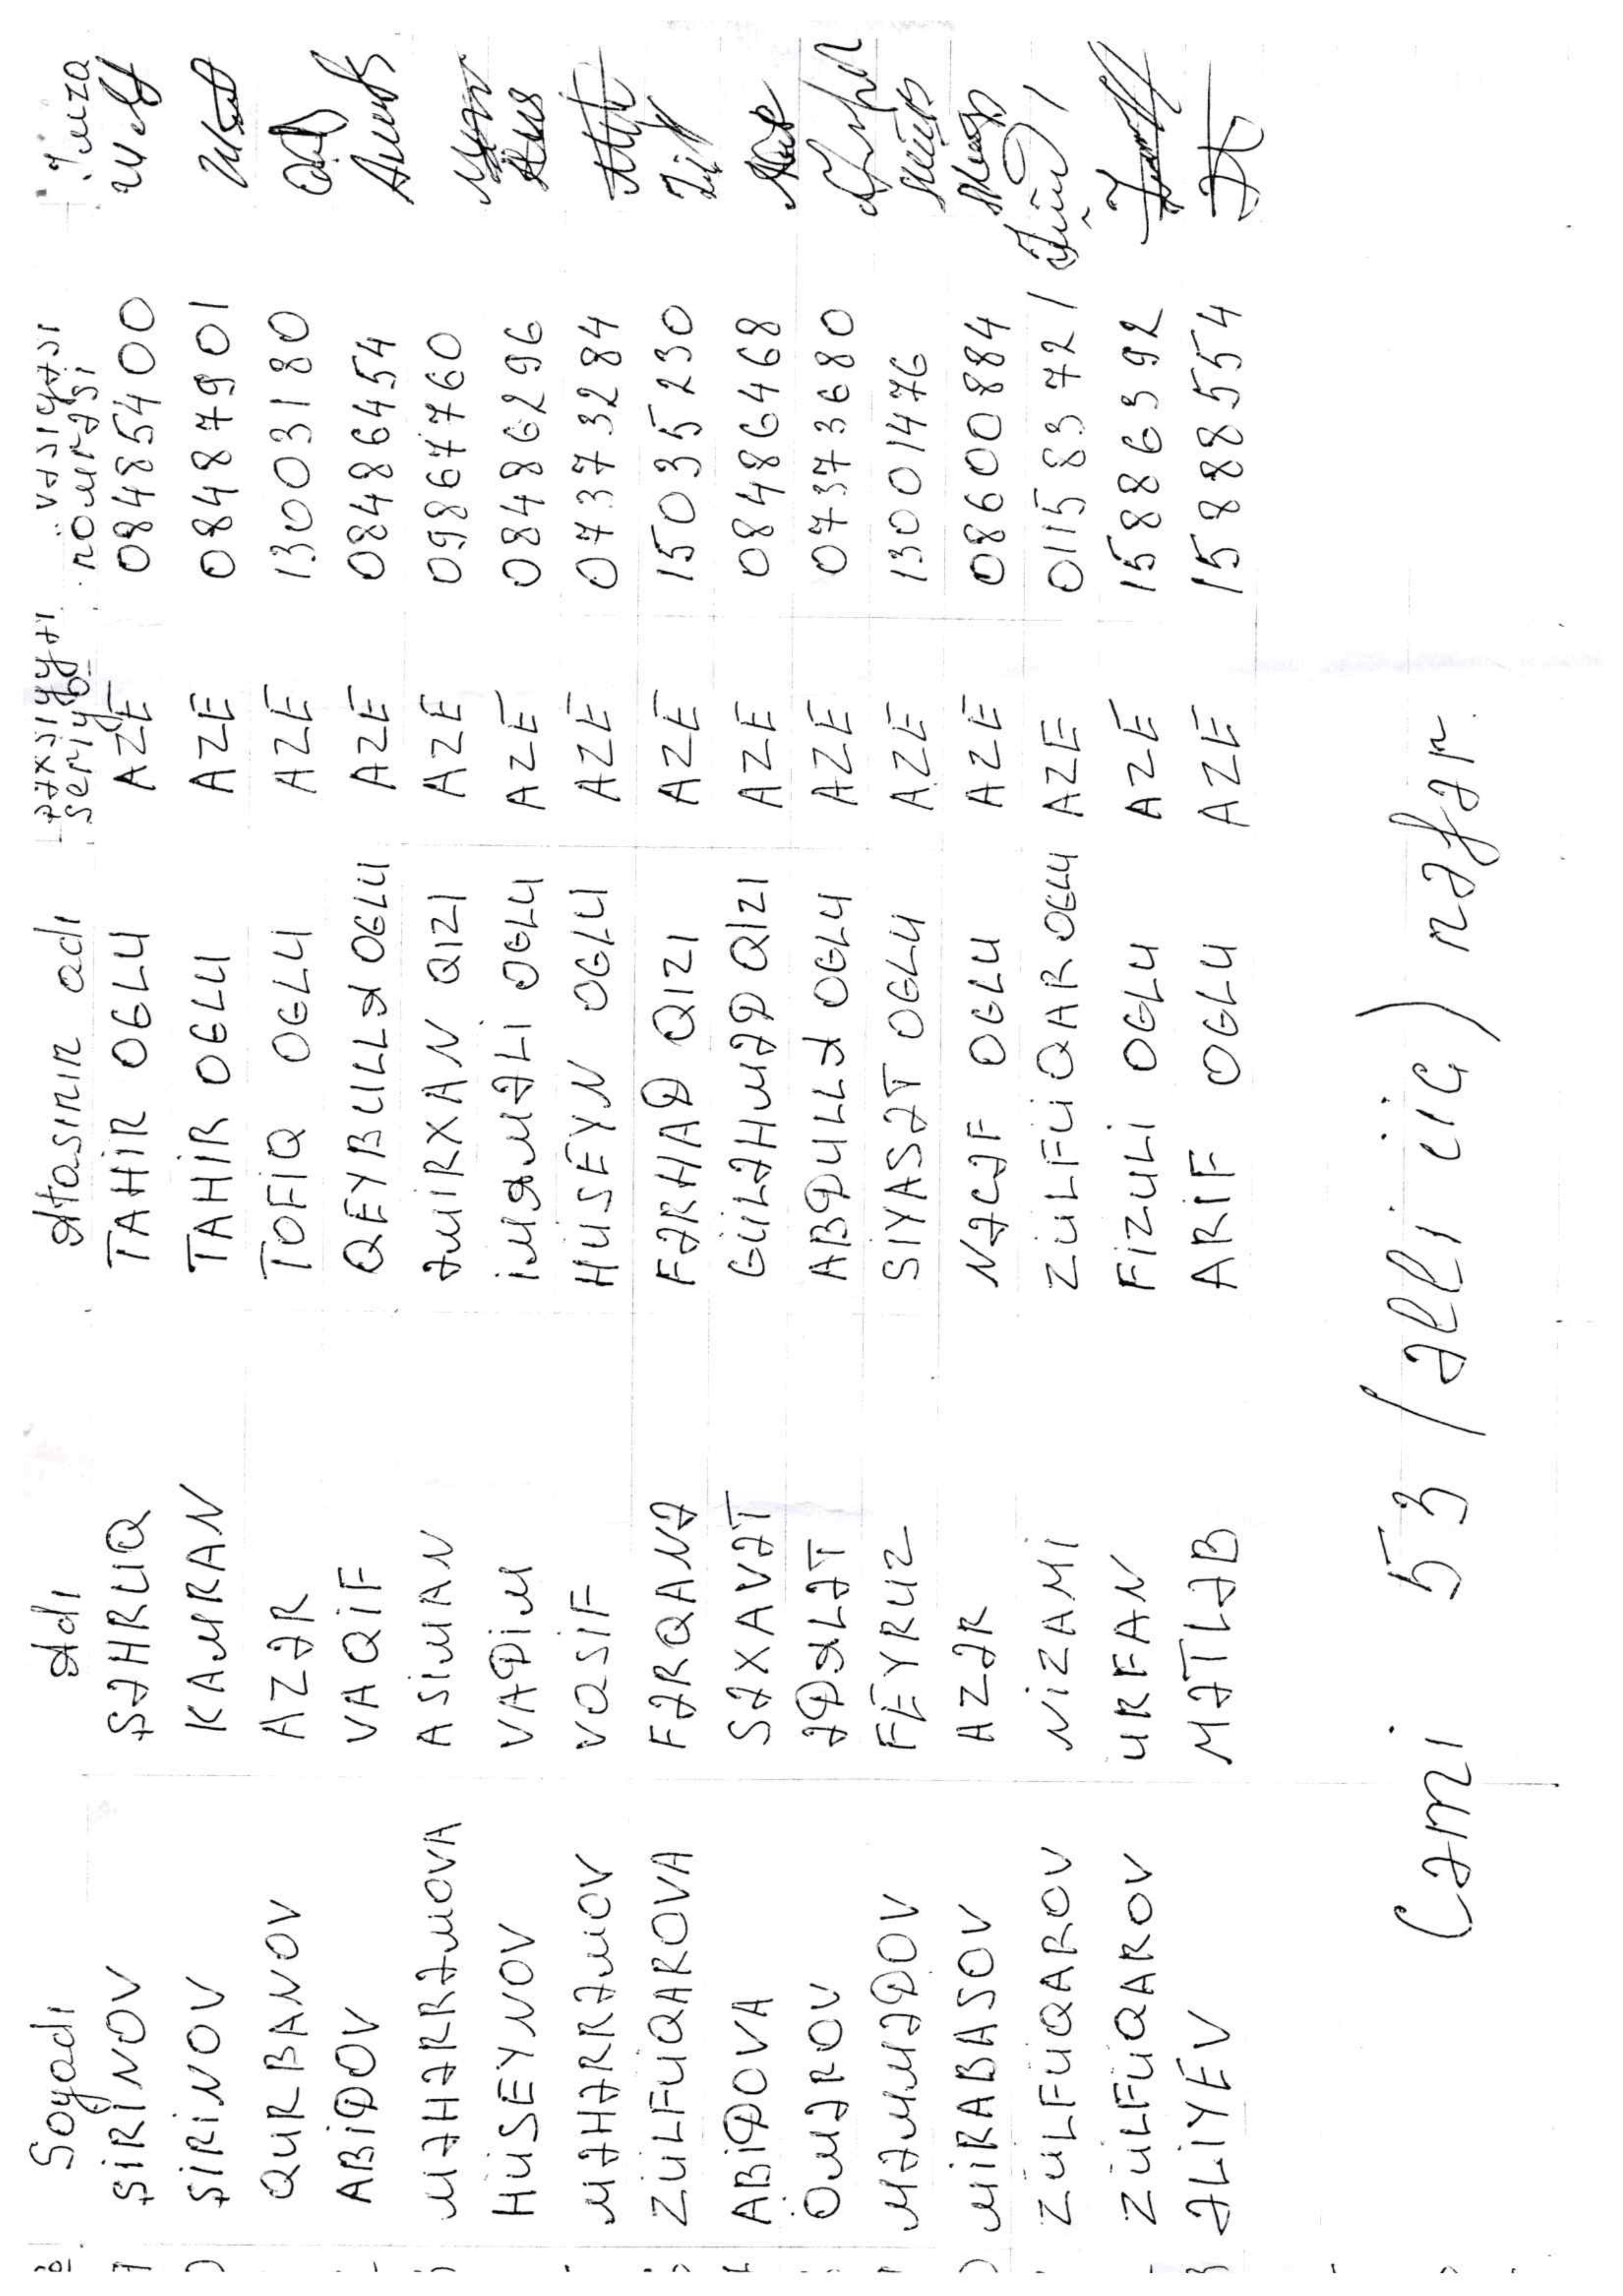 Soyadı Adı Atasının adı şəxsiyyət seriya vəsiqəsi nömrəsi İmza
ŞİRİNOV ŞƏHRUQ TAHİR OGLU AZE 08485400
ŞİRİNOV KAMRAN TAHİR OGLU AZE 08487901
QURBANOV AZƏR TOFİQ OGLU AZE 13003180
ABİDOV VAQİF QEYBULLA OGLU AZE 08486454
MƏHƏRRƏMOVA ASİMAN ƏMİRXAN QIZI AZE 09867760
HÜSEYNOV VADİM İMAMƏLİ OGLU AZE 08486296
MƏHƏRRƏMOV VQSİF HÜSEYN OGLU AZE 07373284
ZÜLFÜQAROVA FƏRQANƏ FƏRHAD QIZI AZE 15035230
ABİDOVA SƏXAVƏT GÜLƏHMƏD QIZI AZE 08486468
ÖMƏROV ƏDALƏT ABDULLA OGLU AZE 07373680
MƏMMƏDOV FEYRUZ SİYASƏT OGLU AZE 13001476
MİRABASOV AZƏR NƏCƏF OGLU AZE 08600884
ZÜLFÜQAROV NİZAMİ ZÜLFÜQAR OGLU AZE 01158372
ZÜLFÜQAROV URFAN FİZULİ OGLU AZE 15886392
ƏLİYEV MƏTLƏB ARİF OGLU AZE 15888554
Cəmi 53 (əlli üç) nəfər